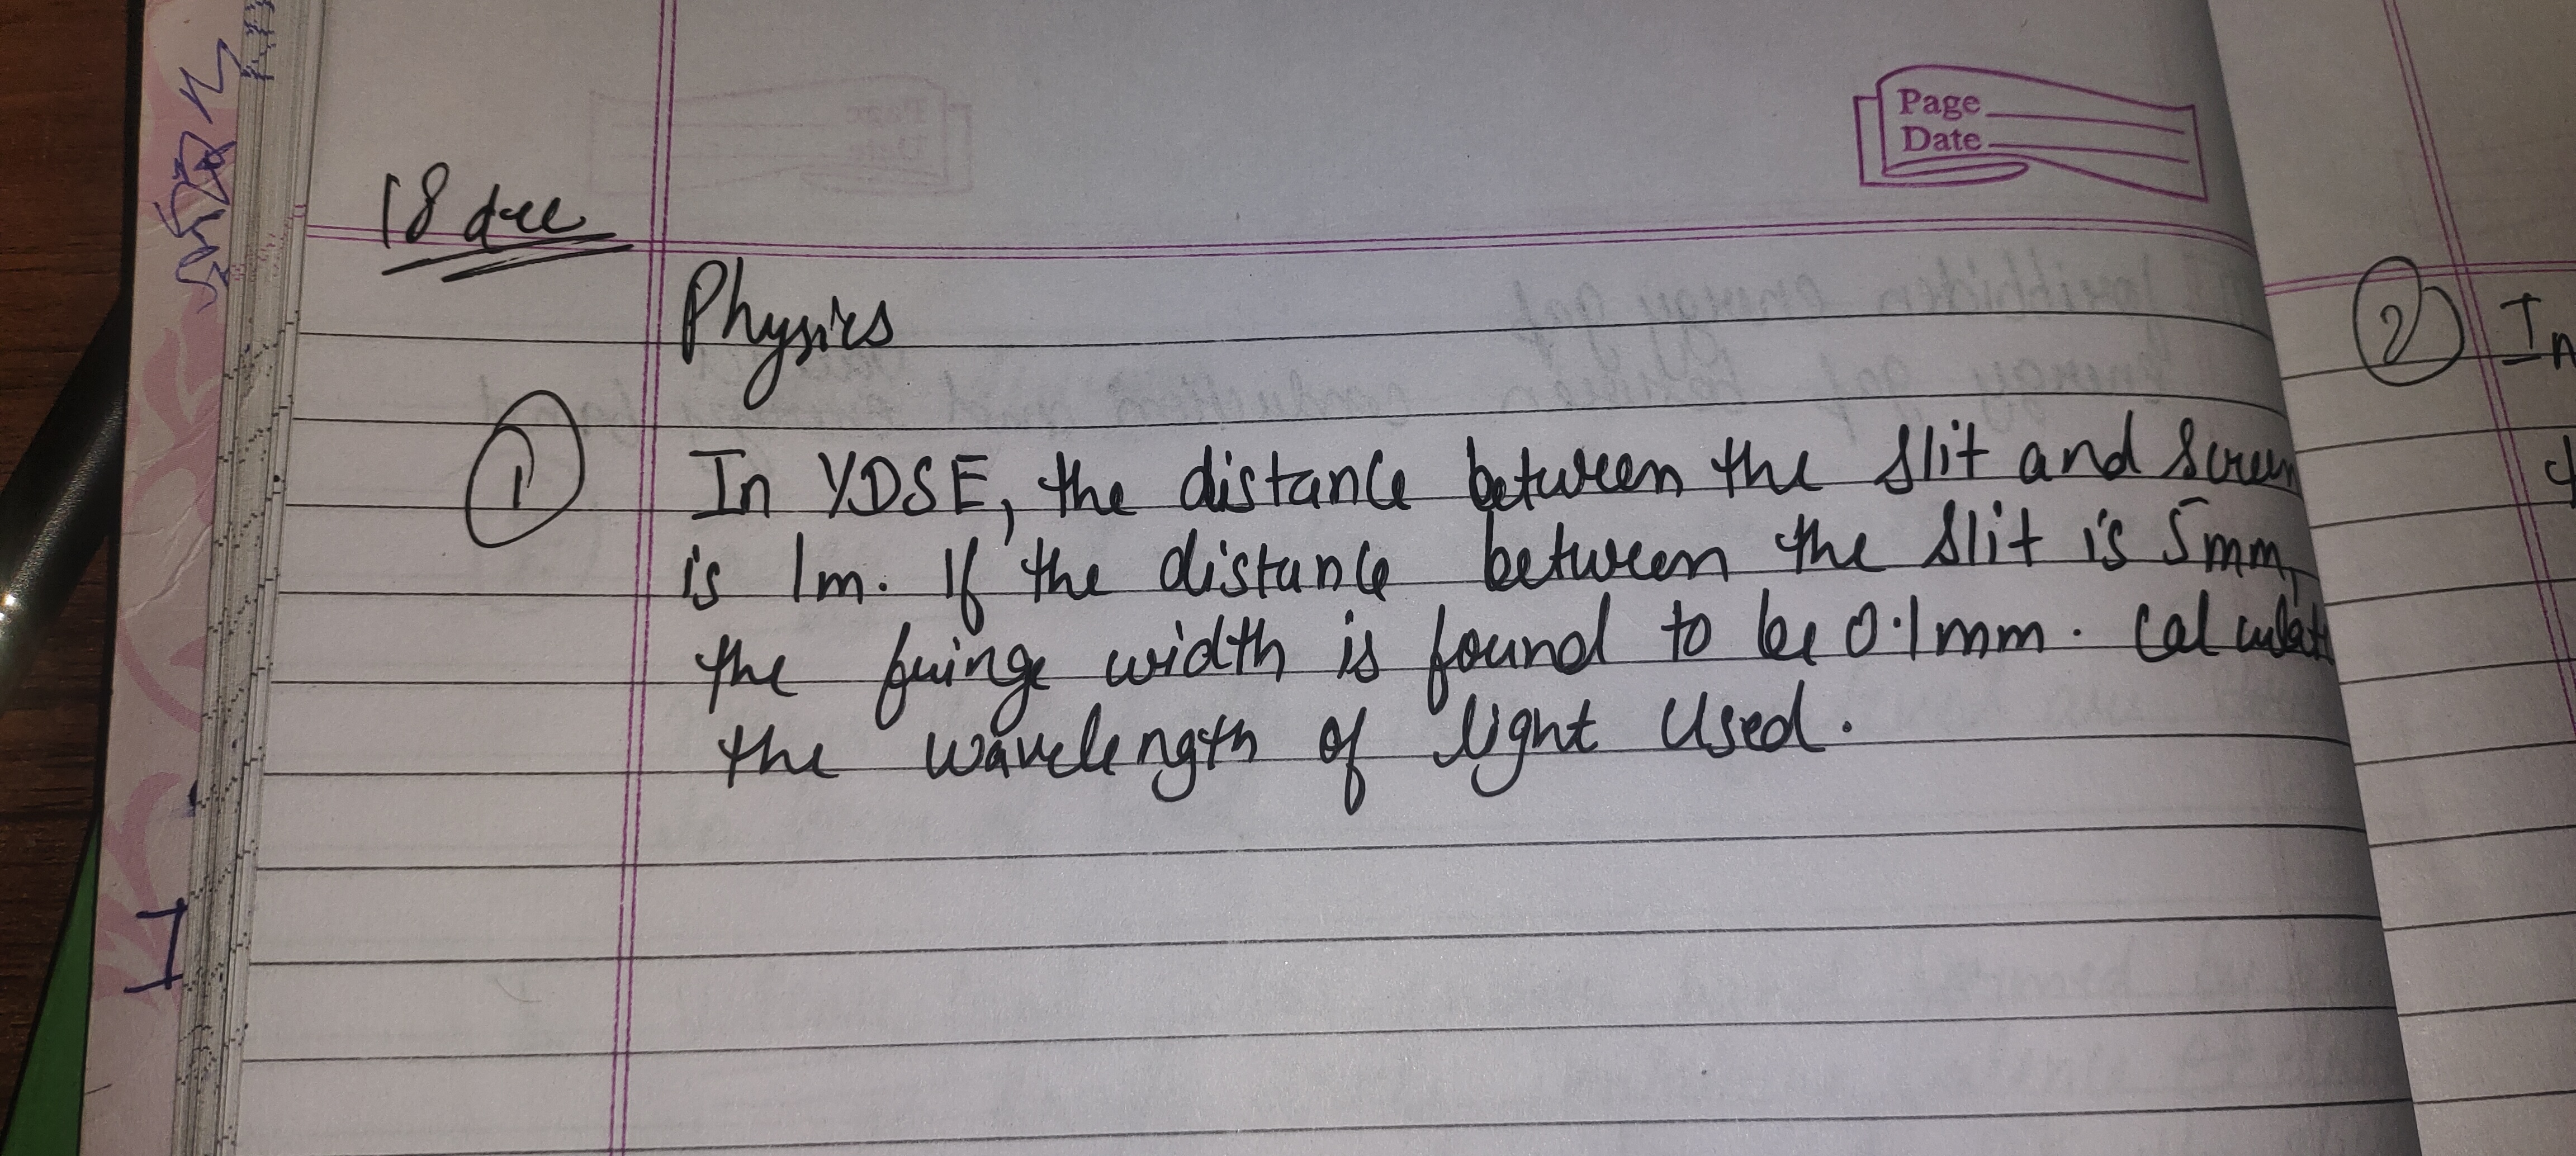 Page
Date
18 dec
Physics
1 In YDSE, the distance between the slit and screen
is 1m. If the distance between the slit is 5mm,
the fringe width is found to be 0.1mm. Calculate
the wavelength of light used.
2 In